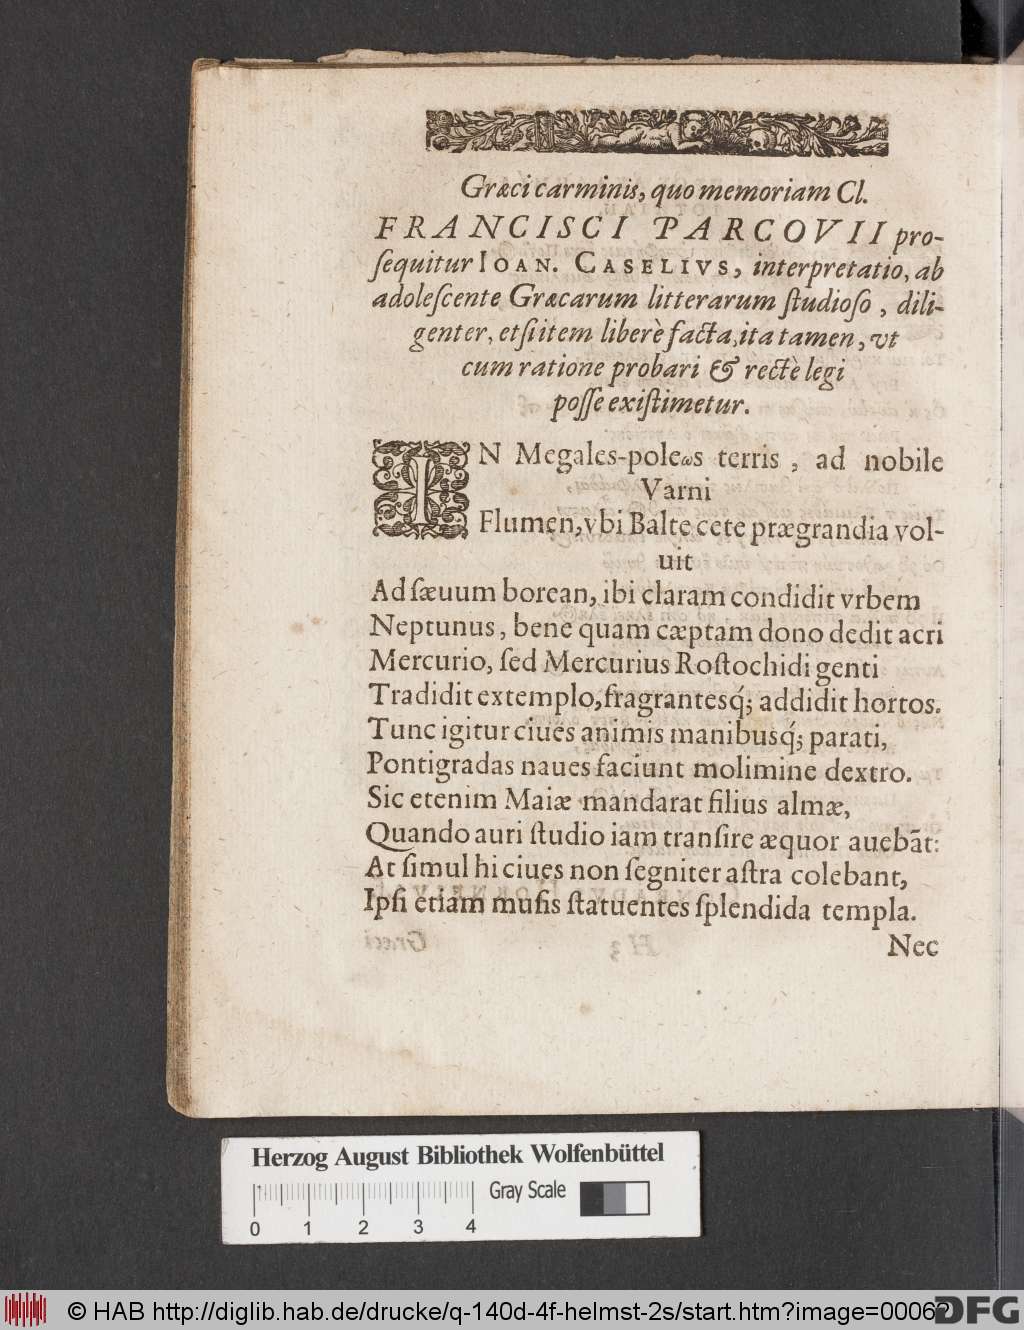 Græci carminis, quo memoriam Cl.
FRANCISCI PARCOVII pro-
ſequitur IOAN. CASELIVS, interpretatio, ab
adoleſcente Græcarum litterarum ſtudioſo, dili-
genter, etſi item liberè facta, ita tamen, vt
cum ratione probari & rectè legi
poſſe exiſtimetur.
IN Megales-poleωs terris, ad nobile
Varni
Flumen, vbi Balte cete prægrandia vol-
uit
Ad ſæuum borean, ibi claram condidit vrbem
Neptunus, bene quam cæptam dono dedit acri
Mercurio, ſed Mercurius Roſtochidi genti
Tradidit extemplo, fragrantesq́; addidit hortos.
Tunc igitur ciues animis manibusq́; parati,
Pontigradas naues faciunt molimine dextro.
Sic etenim Maiæ mandarat filius almæ,
Quando auri ſtudio iam tranſire æquor auebāt:
At ſimul hi ciues non ſegniter aſtra colebant,
Ipſi etiam muſis ſtatuentes ſplendida templa.
Nec
Herzog August Bibliothek Wolfenbüttel
Gray Scale
0 1 2 3 4
© HAB http://diglib.hab.de/drucke/q-140d-4f-helmst-2s/start.htm?image=00062
DFG